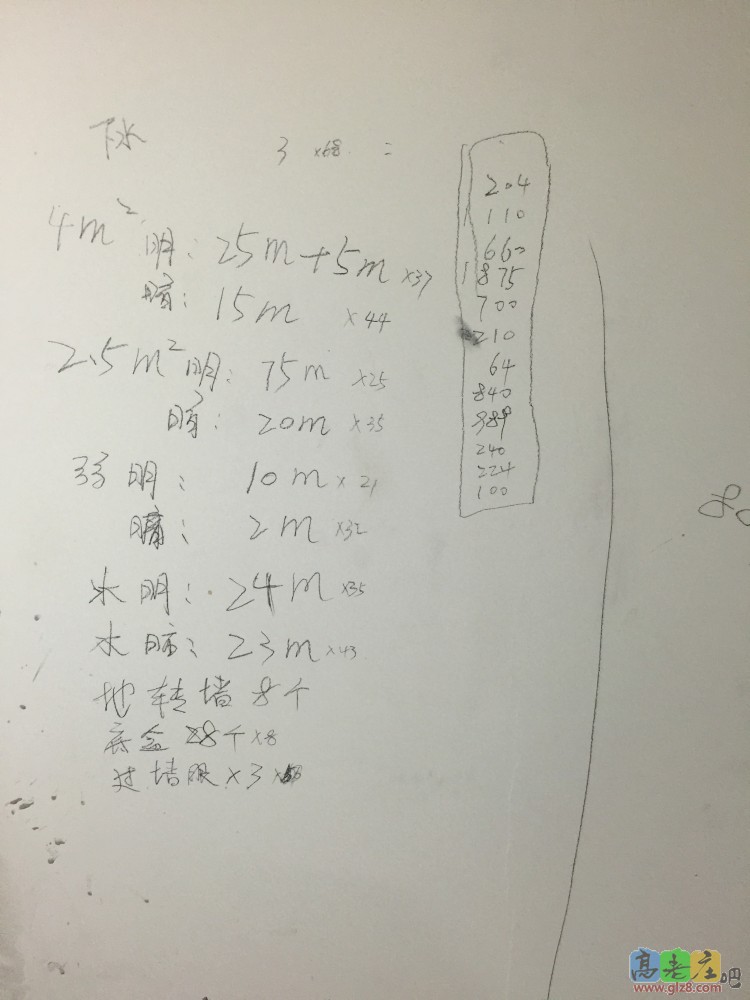 下水 3 ×68 =
4m² 明: 25m+5m ×37
暗: 15m ×44
2.5m² 明: 75m ×25
暗: 20m ×35
弱 明: 10m ×21
暗: 2m ×32
水 明: 24m ×35
水 暗: 23m ×43
地转墙 8个
底盒 28个 ×8
过墙眼 ×3
204
1110
660
1875
700
210
64
840
989
240
224
100
高老庄 吧
www.glz8.com